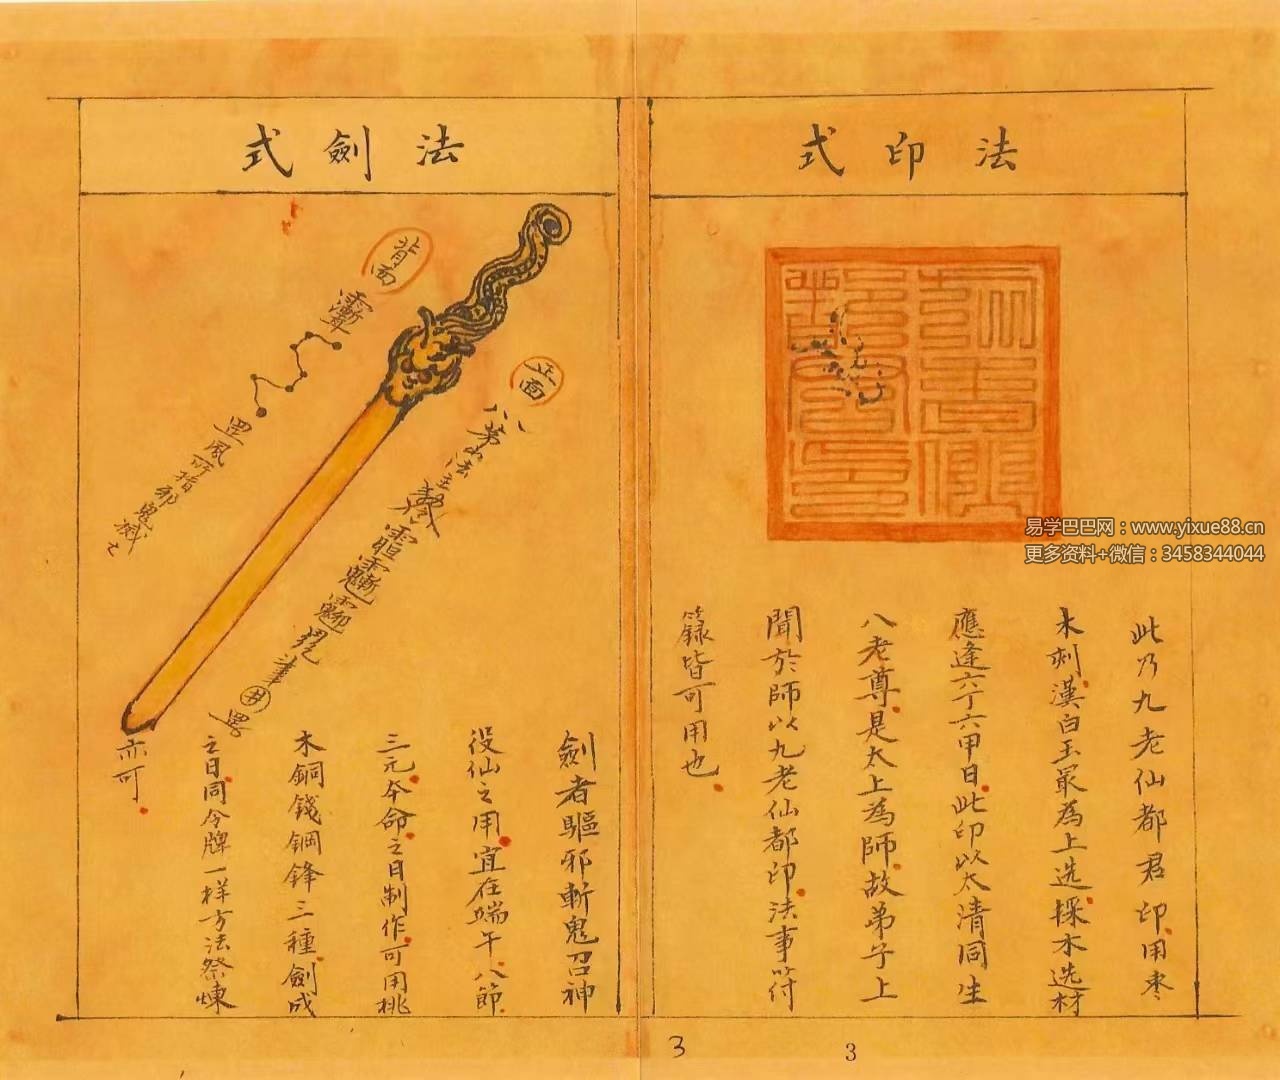 法印式
此乃九老仙都君印.用枣
木刻.漢白玉最為上选.採木选材
應逢六丁六甲日.此印以太清同生
八老尊.是太上為師.故弟子上
聞於師以九老仙都印.法事符
籙皆可用也.
法劍式
背面
罡風所指邪鬼滅之
正面
劍者驅邪斬鬼召神
役仙之用.宜在端午.八節.
三元.本命.之日制作.可用桃
木銅錢鋼鋒三種.劍成
之日.同令牌一样方法祭煉
亦可.
易学巴巴网：www.yixue88.cn
更多资料+微信：3458344044
3
3